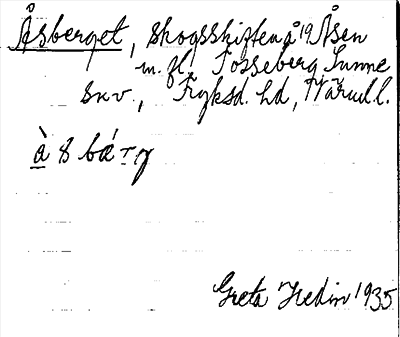 Åsberget, skogsskiften å 19 Åsen
m. fl. Tosseberg Sunne
snv., Fryksd. hd, Värml. l.
à s bǽ ₸ y
Greta Hedin 1935